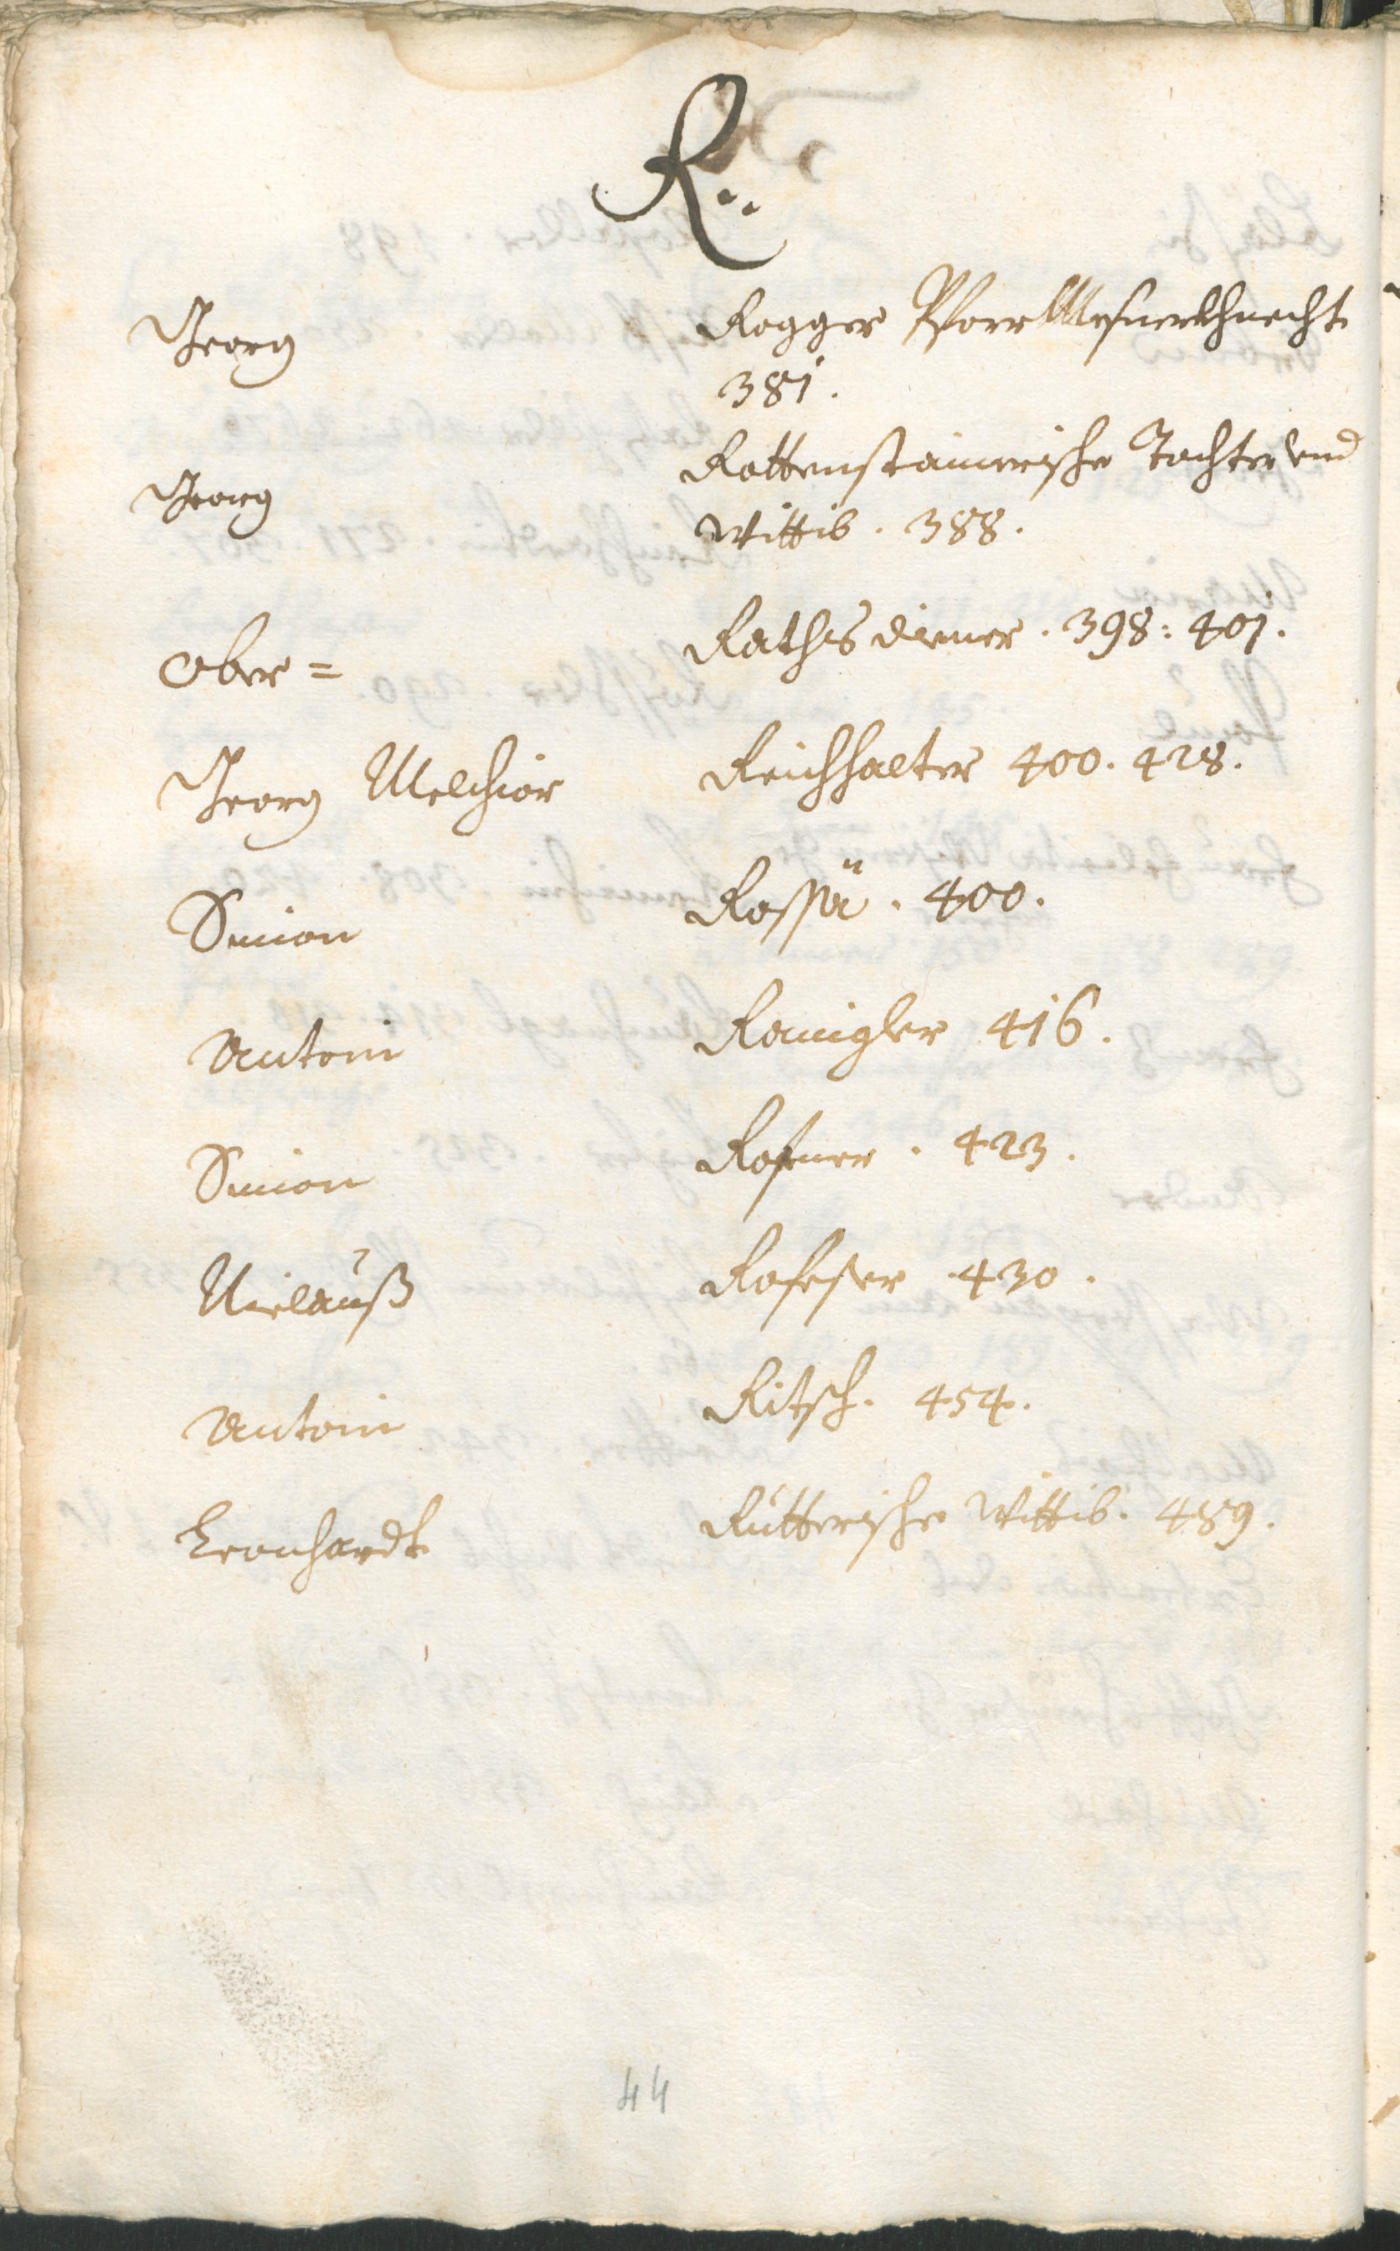 R..
Georg Rogger Pfarr Mesnerkhnecht
381.
Georg Rottenstainerische Tochter und
Wittib. 388.
Ober= Raths diener. 398: 401.
Georg Melchior Reichhalter 400. 428.
Simon Rossä. 400.
Antoni Ramigler 416.
Simon Rosner. 423.
Niclauß 430.
Antoni Ritsch. 454.
Leonhardt Rutterische Wittib. 489.
44